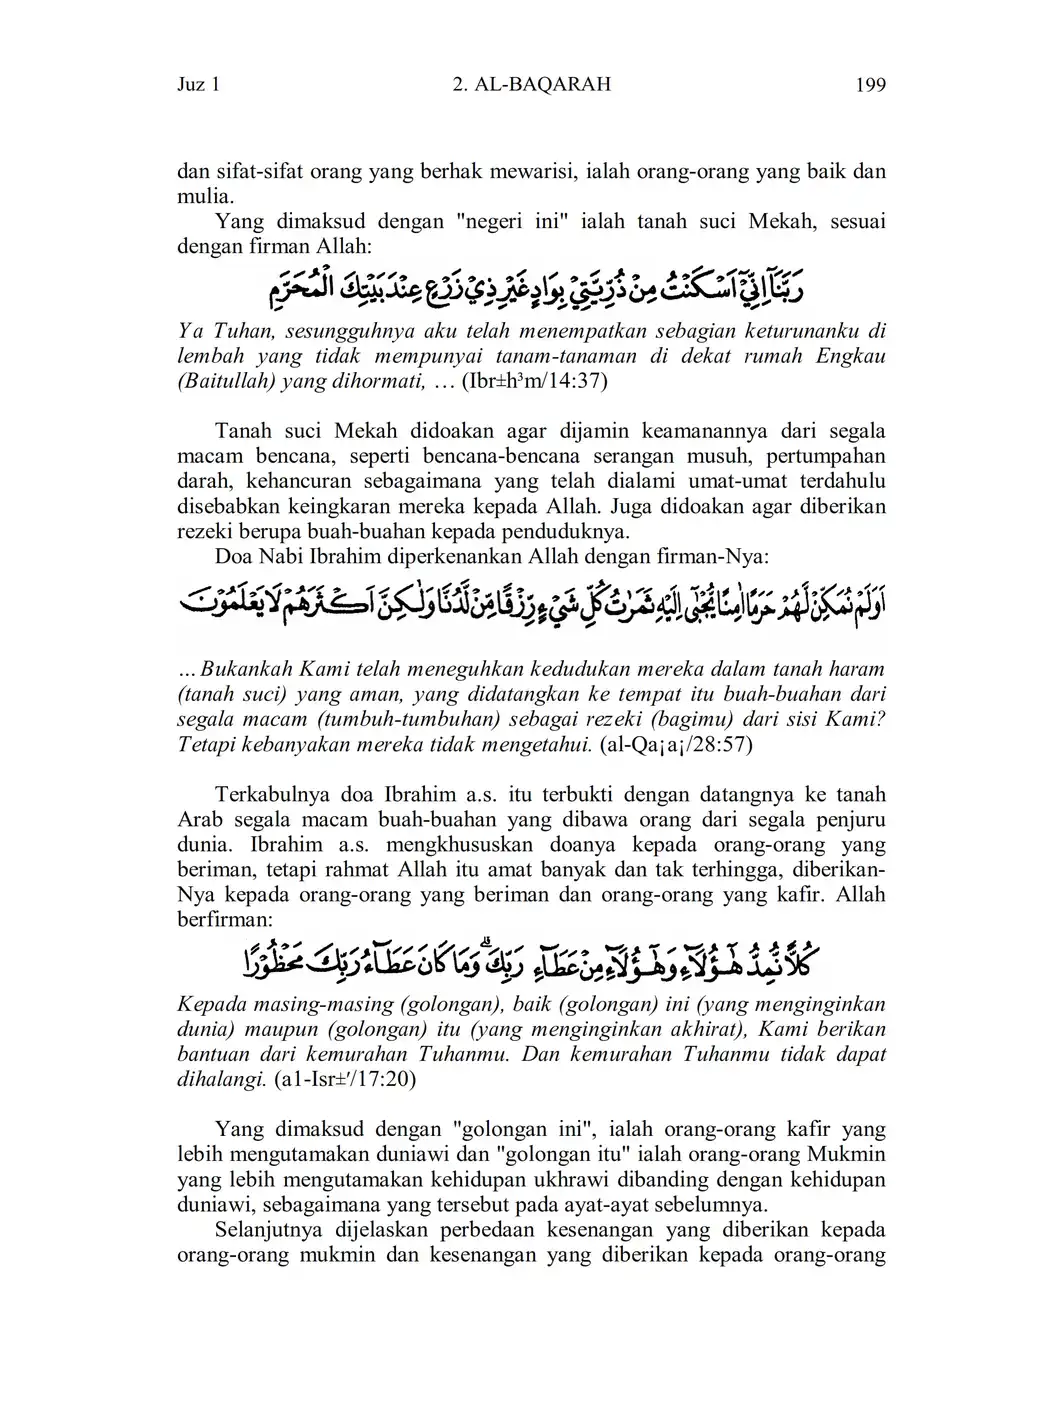 Juz 1 2. AL-BAQARAH 199
dan sifat-sifat orang yang berhak mewarisi, ialah orang-orang yang baik dan
mulia.
Yang dimaksud dengan "negeri ini" ialah tanah suci Mekah, sesuai
dengan firman Allah:
رَبَّنَآ اِنِّيْٓ اَسْكَنْتُ مِنْ ذُرِّيَّتِيْ بِوَادٍ غَيْرِ ذِيْ زَرْعٍ عِنْدَ بَيْتِكَ الْمُحَرَّمِ
Ya Tuhan, sesungguhnya aku telah menempatkan sebagian keturunanku di
lembah yang tidak mempunyai tanam-tanaman di dekat rumah Engkau
(Baitullah) yang dihormati, … (Ibr±h³m/14:37)
Tanah suci Mekah didoakan agar dijamin keamanannya dari segala
macam bencana, seperti bencana-bencana serangan musuh, pertumpahan
darah, kehancuran sebagaimana yang telah dialami umat-umat terdahulu
disebabkan keingkaran mereka kepada Allah. Juga didoakan agar diberikan
rezeki berupa buah-buahan kepada penduduknya.
Doa Nabi Ibrahim diperkenankan Allah dengan firman-Nya:
اَوَلَمْ نُمَكِّنْ لَّهُمْ حَرَمًا اٰمِنًا يُّجْبٰٓى اِلَيْهِ ثَمَرٰتُ كُلِّ شَيْءٍ رِّزْقًا مِّنْ لَّدُنَّا وَلٰكِنَّ اَكْثَرَهُمْ لَا يَعْلَمُوْنَ
… Bukankah Kami telah meneguhkan kedudukan mereka dalam tanah haram
(tanah suci) yang aman, yang didatangkan ke tempat itu buah-buahan dari
segala macam (tumbuh-tumbuhan) sebagai rezeki (bagimu) dari sisi Kami?
Tetapi kebanyakan mereka tidak mengetahui. (al-Qa¡a¡/28:57)
Terkabulnya doa Ibrahim a.s. itu terbukti dengan datangnya ke tanah
Arab segala macam buah-buahan yang dibawa orang dari segala penjuru
dunia. Ibrahim a.s. mengkhususkan doanya kepada orang-orang yang
beriman, tetapi rahmat Allah itu amat banyak dan tak terhingga, diberikan-
Nya kepada orang-orang yang beriman dan orang-orang yang kafir. Allah
berfirman:
كُلًّا نُّمِدُّ هٰٓؤُلَاۤءِ وَهٰٓؤُلَاۤءِ مِنْ عَطَاۤءِ رَبِّكَ ۗوَمَا كَانَ عَطَاۤءُ رَبِّكَ مَحْظُوْرًا
Kepada masing-masing (golongan), baik (golongan) ini (yang menginginkan
dunia) maupun (golongan) itu (yang menginginkan akhirat), Kami berikan
bantuan dari kemurahan Tuhanmu. Dan kemurahan Tuhanmu tidak dapat
dihalangi. (a1-Isr±′/17:20)
Yang dimaksud dengan "golongan ini", ialah orang-orang kafir yang
lebih mengutamakan duniawi dan "golongan itu" ialah orang-orang Mukmin
yang lebih mengutamakan kehidupan ukhrawi dibanding dengan kehidupan
duniawi, sebagaimana yang tersebut pada ayat-ayat sebelumnya.
Selanjutnya dijelaskan perbedaan kesenangan yang diberikan kepada
orang-orang mukmin dan kesenangan yang diberikan kepada orang-orang